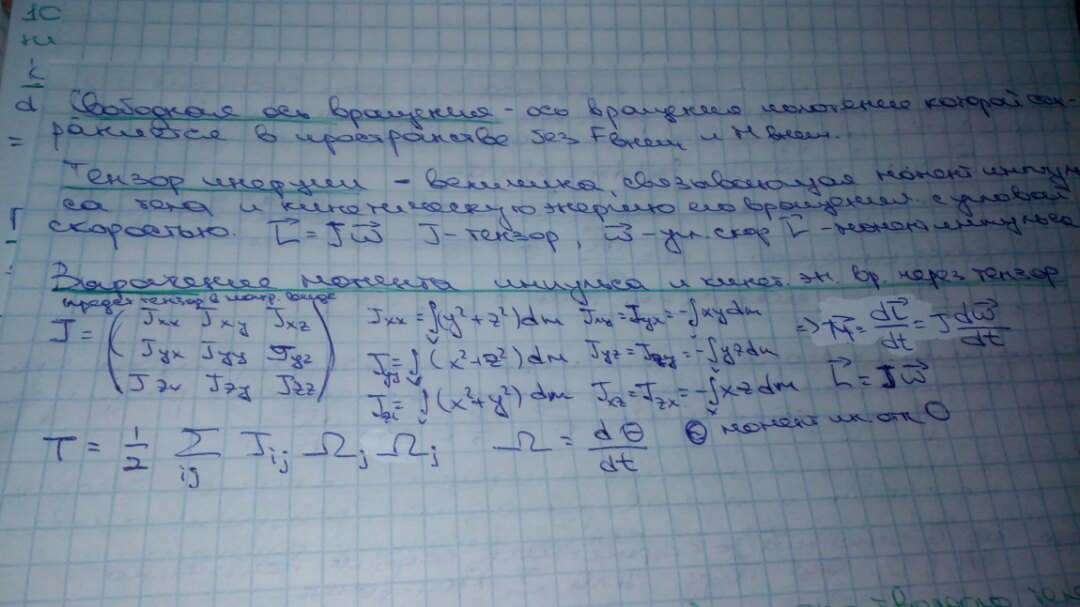 10
Свободная ось вращения - ось вращения положение которой сох-
раняется в пространстве без Fвнеш и Mвнеш.
Тензор инерции - величина, связывающая момент импуль
са тела и кинетическую энергию его вращения с угловой
скоростью. L⃗ = Jω⃗ J - тензор, ω⃗ - уг. скор L⃗ - момент импульса
Выражение момента импульса и кинет. эн. вр. через тензор
предст тензор в матр. виде
J = (Jxx Jxy Jxz Jxx = ∫(y² + z²)dm Jxy = Jyx = -∫xydm => M⃗ = dL⃗/dt = J dω⃗/dt
Jyx Jyy Jyz Jyy = ∫(x² + z²)dm Jyz = Jzy = -∫yzdm
Jzx Jzy Jzz) Jzz = ∫(x² + y²)dm Jxz = Jzx = -∫xzdm L⃗ = Jω⃗
T = 1/2 Σij Jij Ωj Ωj Ω = dΘ/dt момент ин отн O